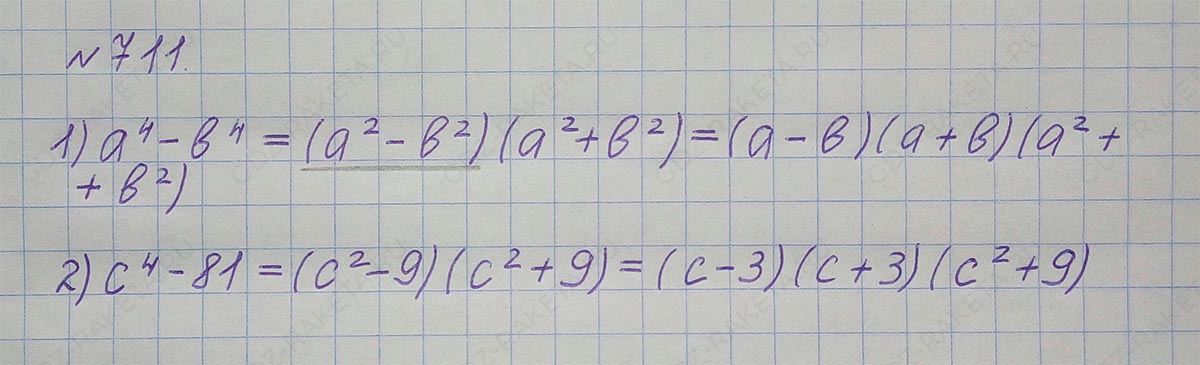 № 711.
1) a⁴ - b⁴ = (a² - b²)(a² + b²) = (a - b)(a + b)(a² +
+ b²)
2) c⁴ - 81 = (c² - 9)(c² + 9) = (c - 3)(c + 3)(c² + 9)